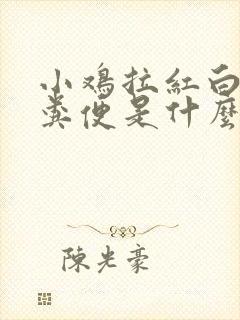 小鸡拉紅白
粪便是什麼
陳光豪